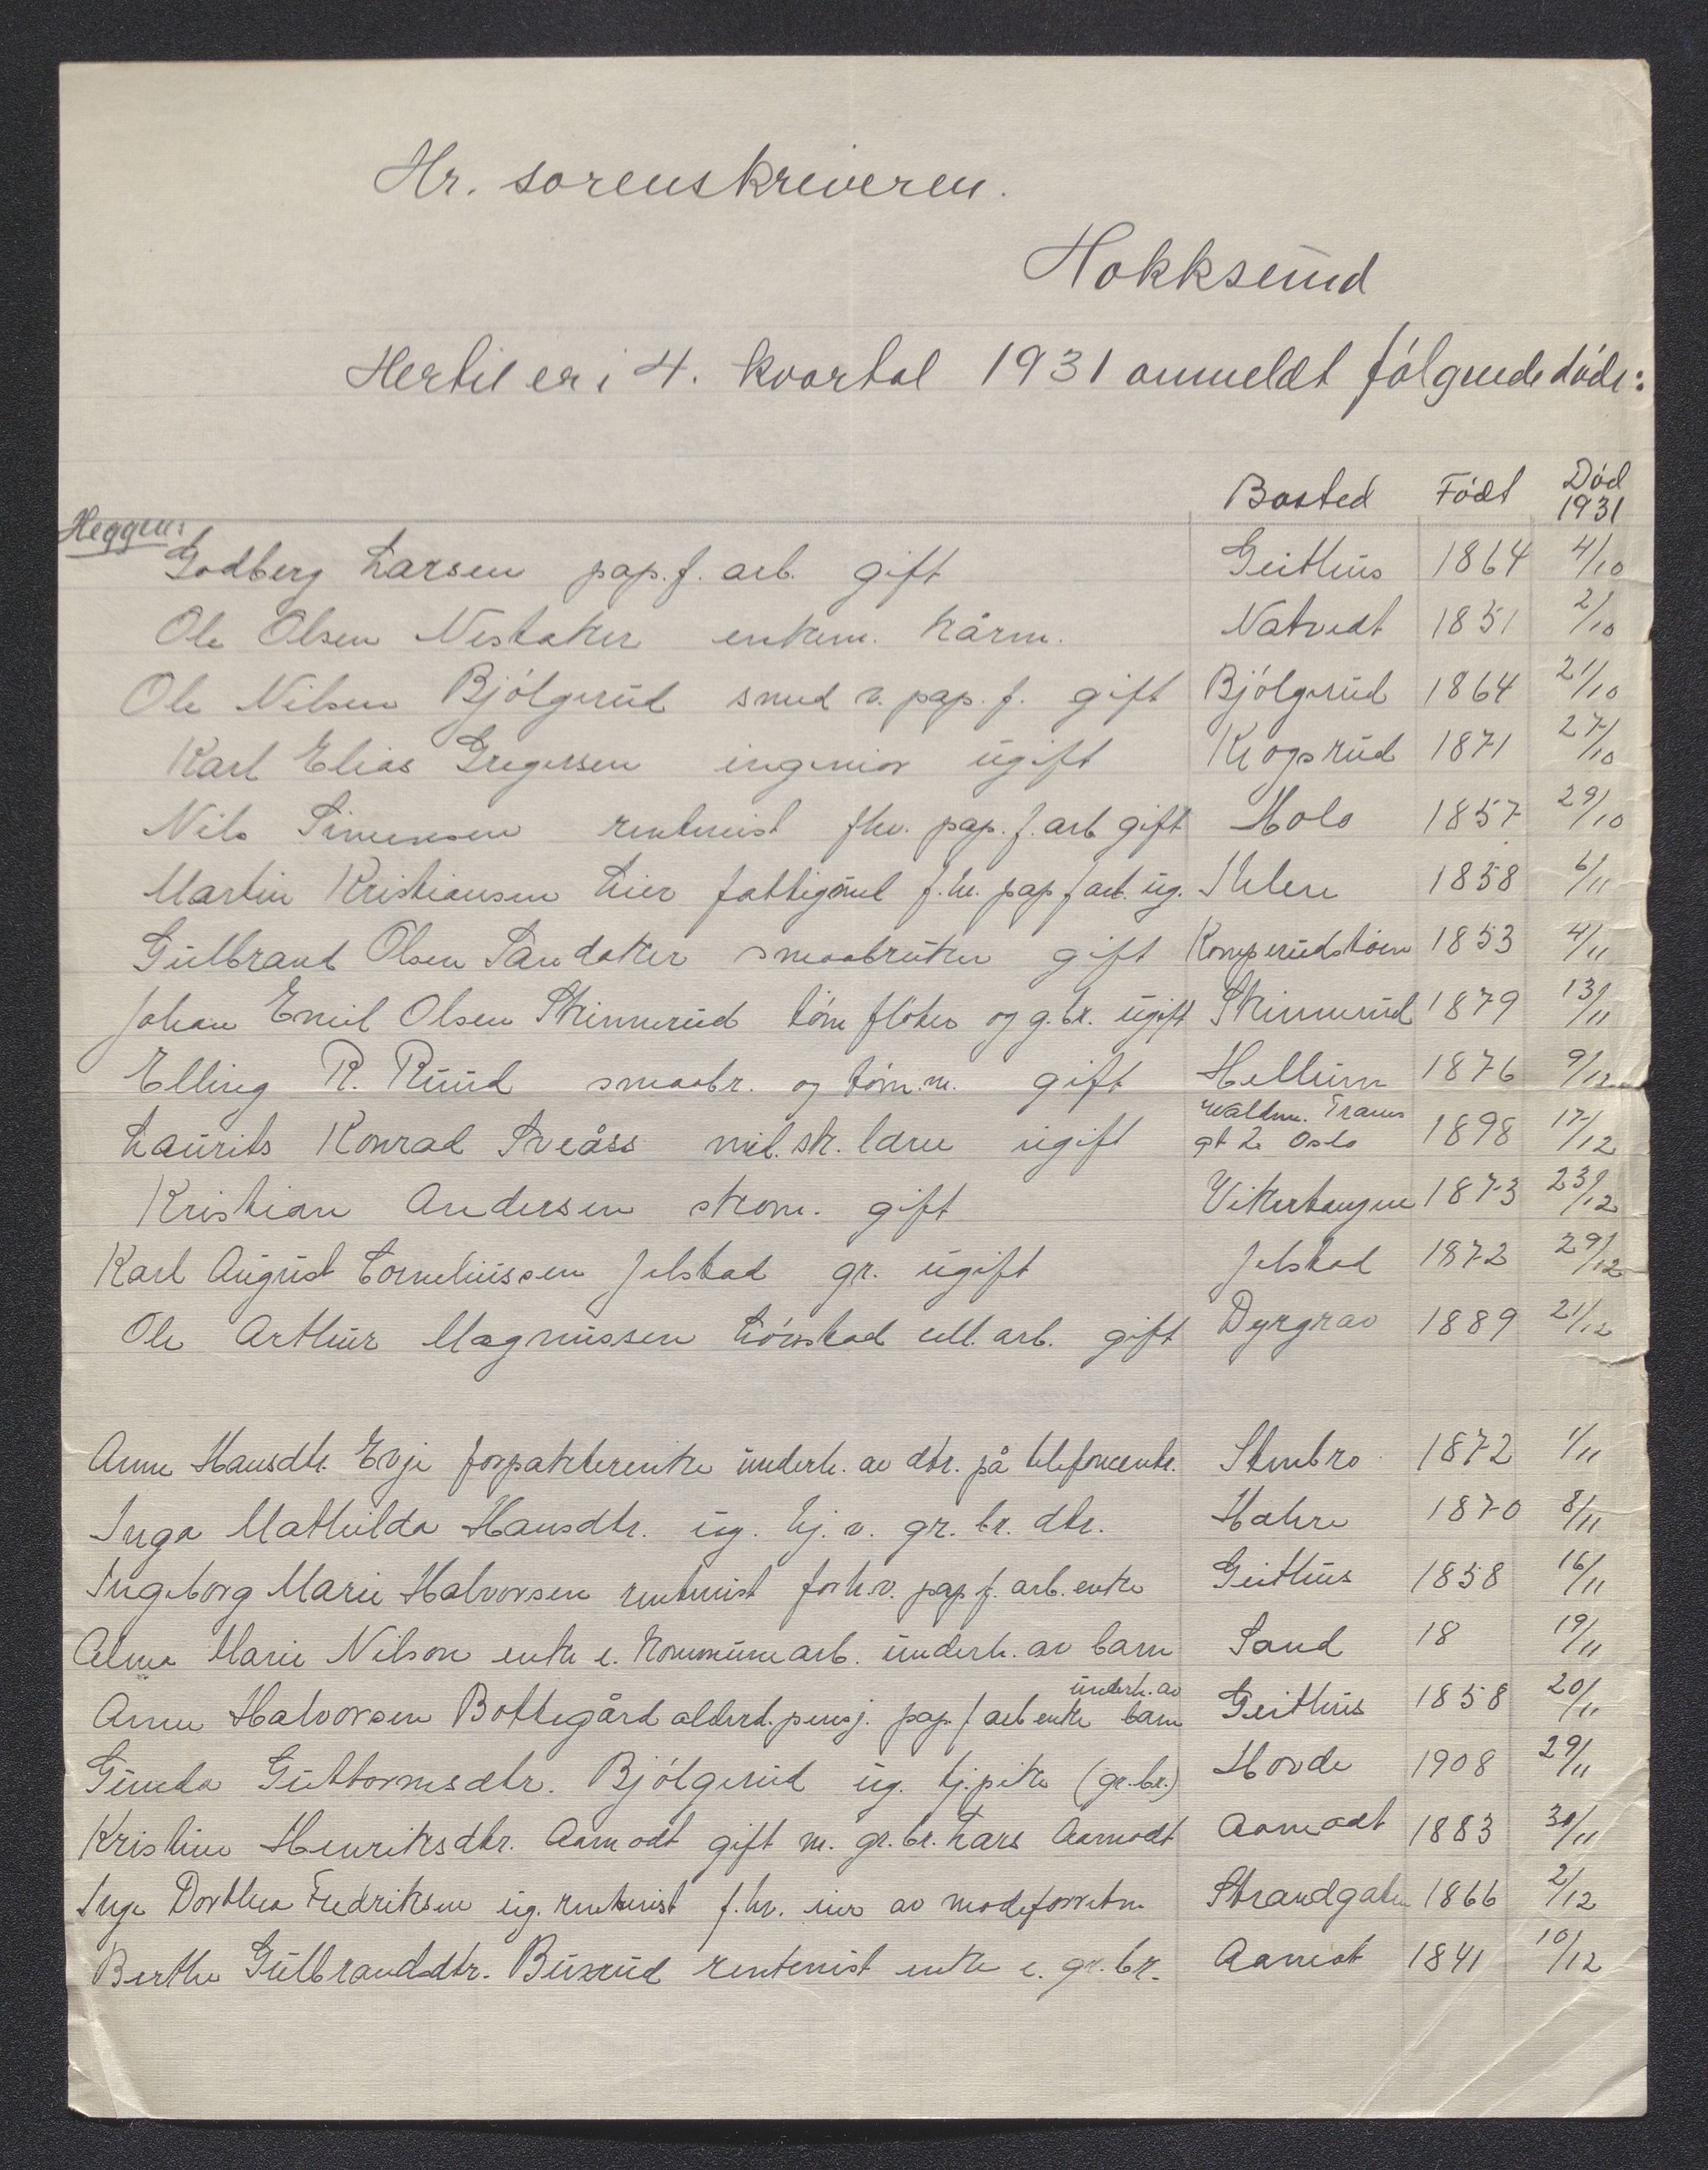 Hr. sorenskriveren.
Hokksund
Hertil er i 4. kvartal 1931 anmeldt følgende døde:
Bosted Født Død 1931
Heggen:
Godberg Larsen pap.f. arb. gift Geithus 1864 4/10
Ole Olsen Nestaker enkem. kårm. Natvedt 1851 2/10
Ole Nilsen Bjølgerud smed v. pap. f. gift Bjølgerud 1864 21/10
Karl Elias Gregersen ingeniør ugift Krogsrud 1871 27/10
Nils Simensen rentenist fhv. pap. f. arb gift Holo 1857 29/10
Martin Kristiansen Lier fattigund f.hv. pap f arb. ug. 1858 6/11
Gulbrand Olsen Sandaker smaabruker gift Komperudstøen 1853 4/11
Johan Emil Olsen Skinnerud tøm fløter og g.br. ugift Skinnerud 1879 13/11
Elling R. Ruud smaabr. og tøm.m. gift Hellum 1876 9/12
Laurits Konrad Sveåss mel. sk. lære ugift Waldm. Tranes gt 2. Oslo 1898 17/12
Kristian Andersen skom. gift Vikerhaugen 1873 23/12
Karl August Corneliussen Jelstad gr. ugift Jelstad 1872 29/12
Ole Arthur Magnussen cell. arb. gift Dyrgrav 1889 21/12
Anne Hansdtr. Evje forpakterenke underh. av dtr. på telefoncentr. Stenbro 1872 1/11
Inga Mathilda Hansdtr. ug. hj. v. gr. br. dtr. Hahre 1870 8/11
Ingeborg Marie Halvorsen rentenist forh.v. pap f. arb. enke Geithus 1858 16/11
Alma Marie Nilson enke e. Kommunearb. underh. av barn Sand 18 19/11
Anne Halvorsen Bottegård alderd. pensj. pap f arb enke underh. av barn Geithus 1858 20/11
Gunda Guttormsdtr. Bjølgerud ug. tj.pike (gr.br.) Hovde 1908 29/11
Kristine Henriksdtr. Aamodt gift m. gr.br. Lars Aamodt Aamodt 1883 30/11
Inge Dorthea Fredriksen ug. rentenist f.hv. eier av modeforretn Strandgaten 1866 2/12
Berthe Gulbrandsdtr. Buxrud rentenist enke e. gr. br. Aamot 1841 10/12